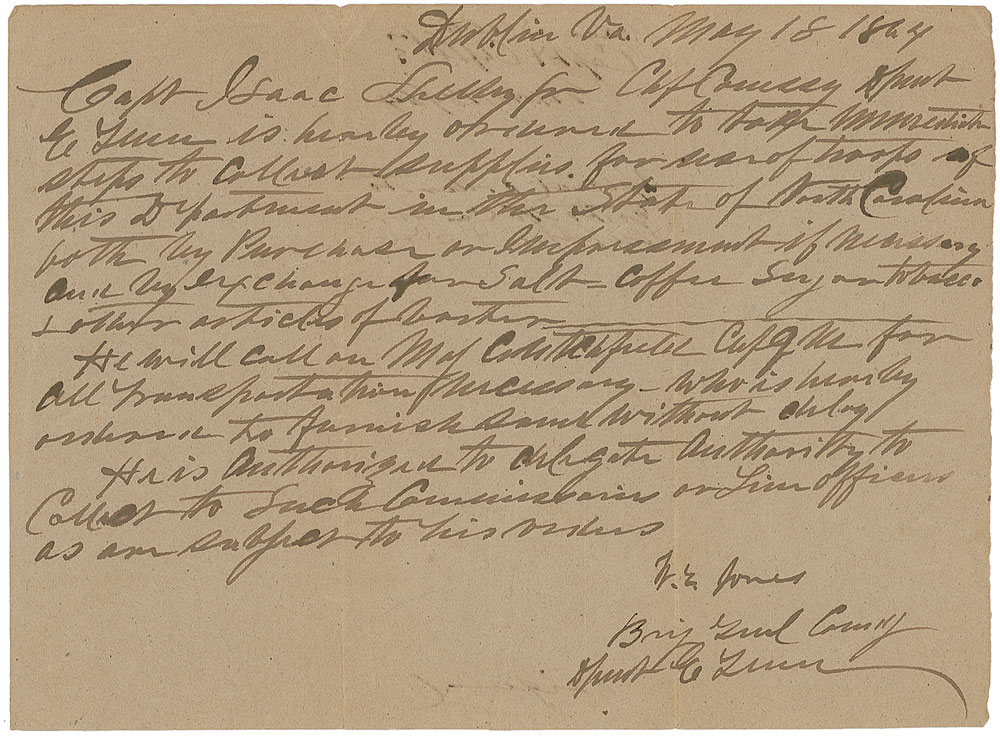 Dublin Va. May 18 1864
Capt Isaac Shelby Jr Chf Comssy Dpmt
E Tenn is hereby ordered to take immediate
steps to collect supplies for use of troops of
this Department in the State of North Carolina
both by Purchase or Impressment if necessary
and by exchange for Salt - Coffee Sugar tobacco
& other articles of barter
He will call on Maj Chf Q M for
all transportation necessary - who is hereby
ordered to furnish same without delay
He is authorized to delegate authority to
Collect to Such Commissaries or Line Officers
as are subject to his orders
W. E. Jones
Brig Genl Comdg
Dpmt E Tenn